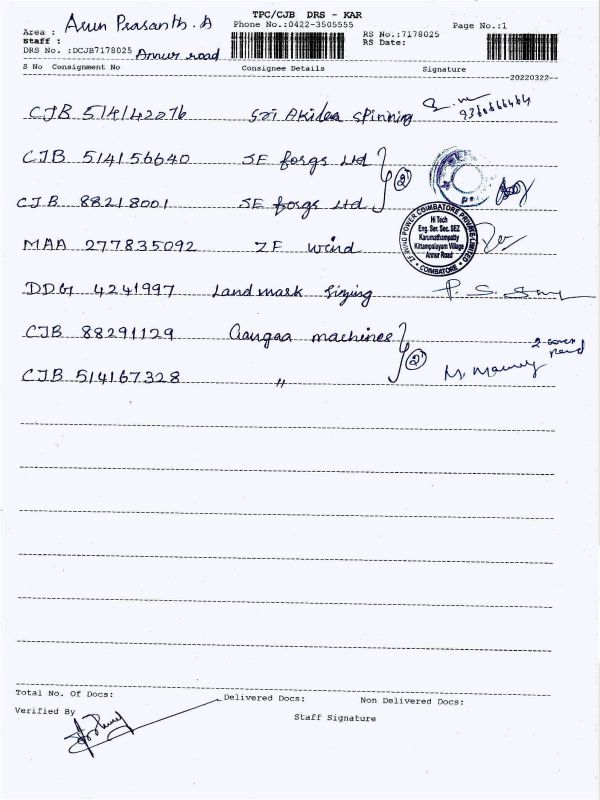 TPC/CJB DRS - KAR
Area : Arun Prasanth. A Phone No.:0422-3505555 Page No.:1
Staff : RS No.:7178025
DRS No. :DCJB7178025 Annur road RS Date:
S No Consignment No Consignee Details Signature
20220322
CJB 514142076 Sri Akilea Spinning
CJB 514156640 SE forgs Ltd
(2)
CJB 88218001 SE forgs Ltd
ZF WIND POWER COIMBATORE PRIVATE LIMITED
Hi Tech
Eng. Ser. Sec. SEZ
Karunathampatty
Kittampalayam Village
Annur Road
* COIMBATORE *
MAA 277835092 ZF wind
DDG 4241997 Landmark
CJB 88291129 Gangaa machines
(2) 2 cover
CJB 514167328 " M.
Total No. Of Docs: Delivered Docs: Non Delivered Docs:
Verified By
Staff Signature